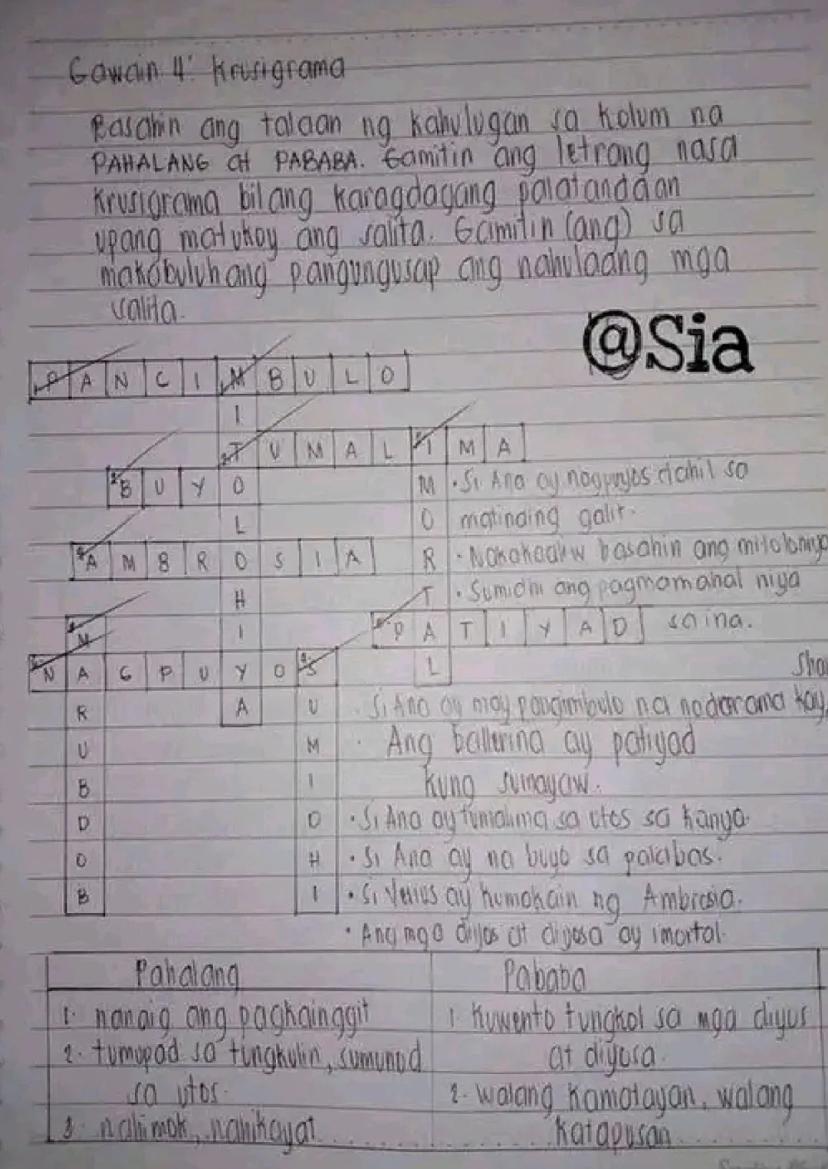 Gawain 4: Krusigrama
Basahin ang talaan ng kahulugan sa kolum na
PAHALANG at PABABA. Gamitin ang letrang nasa
krusigrama bilang karagdagang palatandaan
upang matukoy ang salita. Gamitin (ang) sa
makabuluhang pangungusap ang nahulaang mga
salita.
@Sia
P A N G I M B U L O
I
T U M A L I M A
B U Y O
M • Si Ana ay nagpuyos dahil sa
L
O matinding galit.
A M B R O S I A
R • Nakakaaliw basahin ang mitolohiya
H
T • Sumidhi ang pagmamahal niya
M
I
P A T I Y A D sa ina.
N A G P U Y O S
L
R
A
U • Si Ana ay may pangimbulo na nadarama kay
U
M • Ang ballerina ay patiyad
B
I kung sumayaw.
D
D • Si Ana ay tumalima sa utos sa kanya.
O
H • Si Ana ay na buyo sa palabas.
B
I • Si Venus ay kumakain ng Ambrosia.
• Ang mga diyos at diyosa ay imortal.
Pahalang Pababa
1. nanaig ang pagkainggit 1. Kuwento tungkol sa mga diyus
2. tumupad sa tungkulin, sumunod at diyosa.
sa utos. 2. walang kamatayan, walang
3. nahimok, nahikayat katapusan